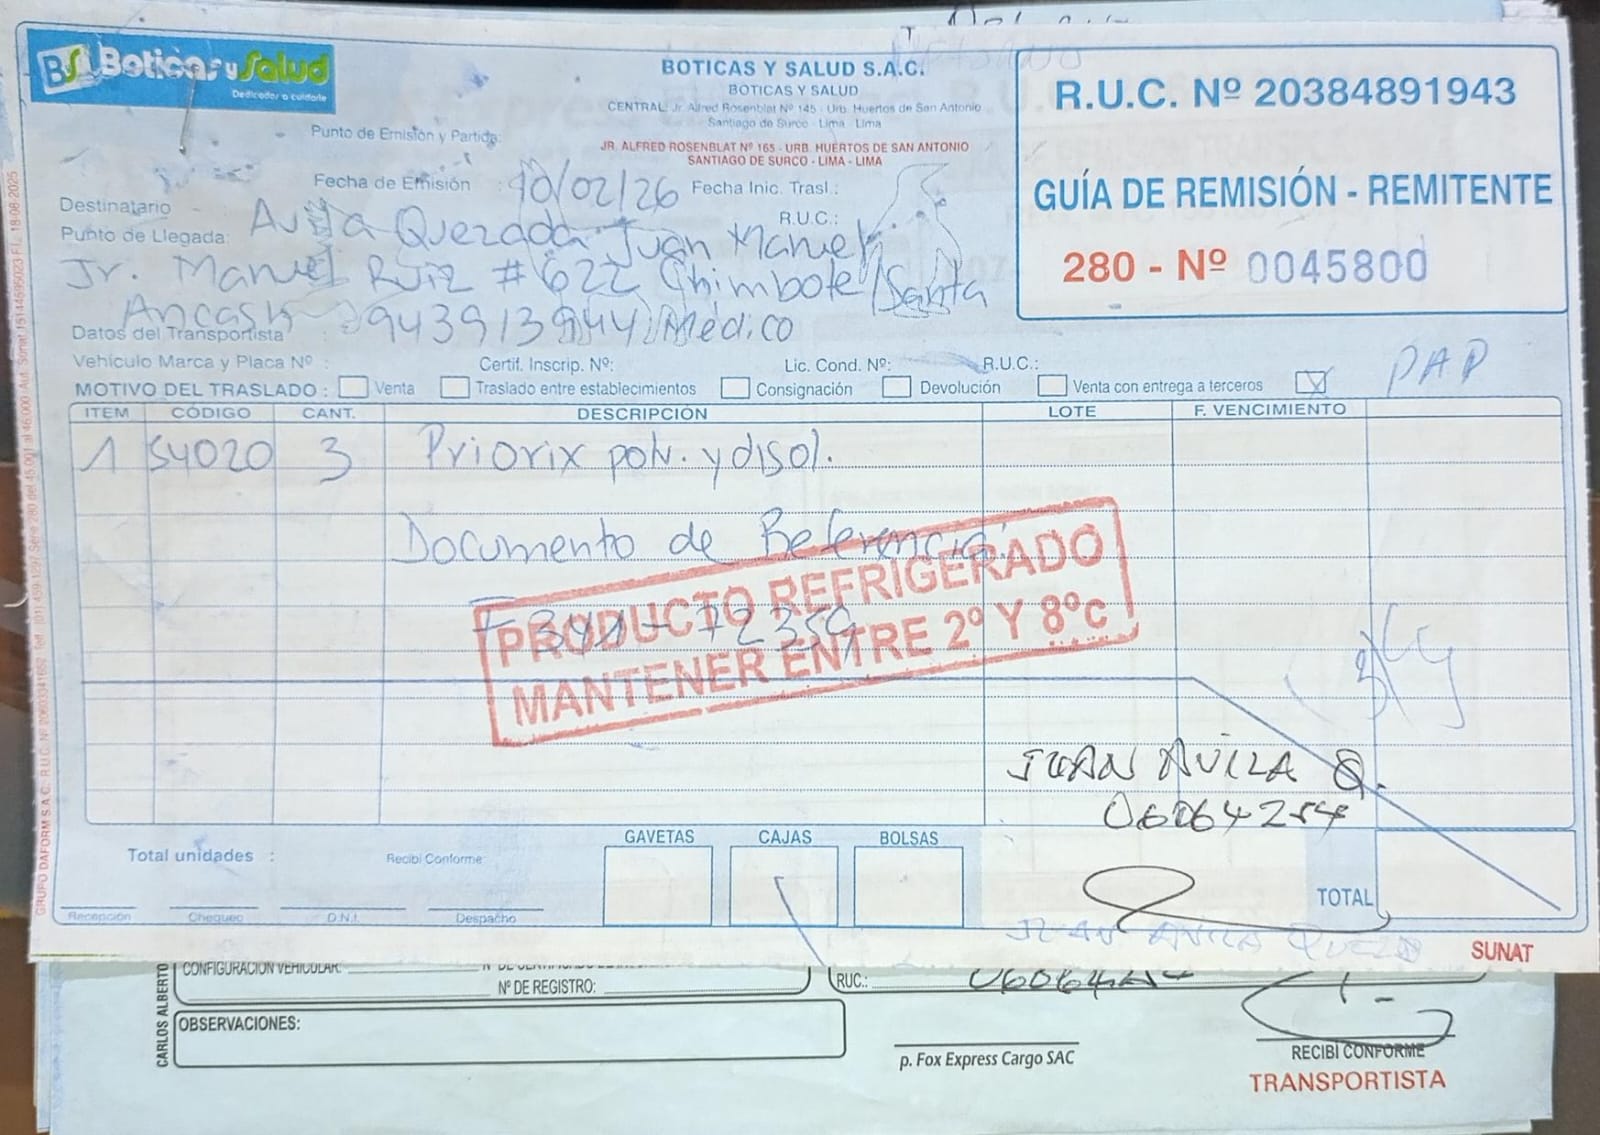 BS Boticas y Salud
Dedicados a cuidarte
BOTICAS Y SALUD S.A.C.
BOTICAS Y SALUD
CENTRAL: Jr. Alfred Rosenblat Nº 145 - Urb. Huertos de San Antonio
Santiago de Surco - Lima - Lima
JR. ALFRED ROSENBLAT Nº 165 - URB. HUERTOS DE SAN ANTONIO
SANTIAGO DE SURCO - LIMA - LIMA
R.U.C. Nº 20384891943
GUÍA DE REMISIÓN - REMITENTE
280 - Nº 0045800
Punto de Emisión y Partida:
Fecha de Emisión : 10/02/26 Fecha Inic. Trasl.:
Destinatario Avila Quezada Juan Manuel R.U.C.:
Punto de Llegada:
Jr. Manuel Ruiz # 622 Chimbote/Santa
Ancash 943913944/Médico
Datos del Transportista
Vehículo Marca y Placa Nº : Certif. Inscrip. Nº: Lic. Cond. Nº: R.U.C.:
MOTIVO DEL TRASLADO : Venta Traslado entre establecimientos Consignación Devolución Venta con entrega a terceros X PAP
ITEM CÓDIGO CANT. DESCRIPCIÓN LOTE F. VENCIMIENTO
1 54020 3 Priorix polv. y disol.
Documento de Referencia:
PRODUCTO REFRIGERADO
MANTENER ENTRE 2º Y 8ºc
JUAN AVILA Q.
06064254
GAVETAS CAJAS BOLSAS
Total unidades : Recibí Conforme
TOTAL
Recepción Chequeo D.N.I. Despacho
JUAN AVILA
SUNAT
CONFIGURACIÓN VEHICULAR:
Nº DE REGISTRO:
RUC.:
OBSERVACIONES:
CARLOS ALBERTO
p. Fox Express Cargo SAC
RECIBÍ CONFORME
TRANSPORTISTA